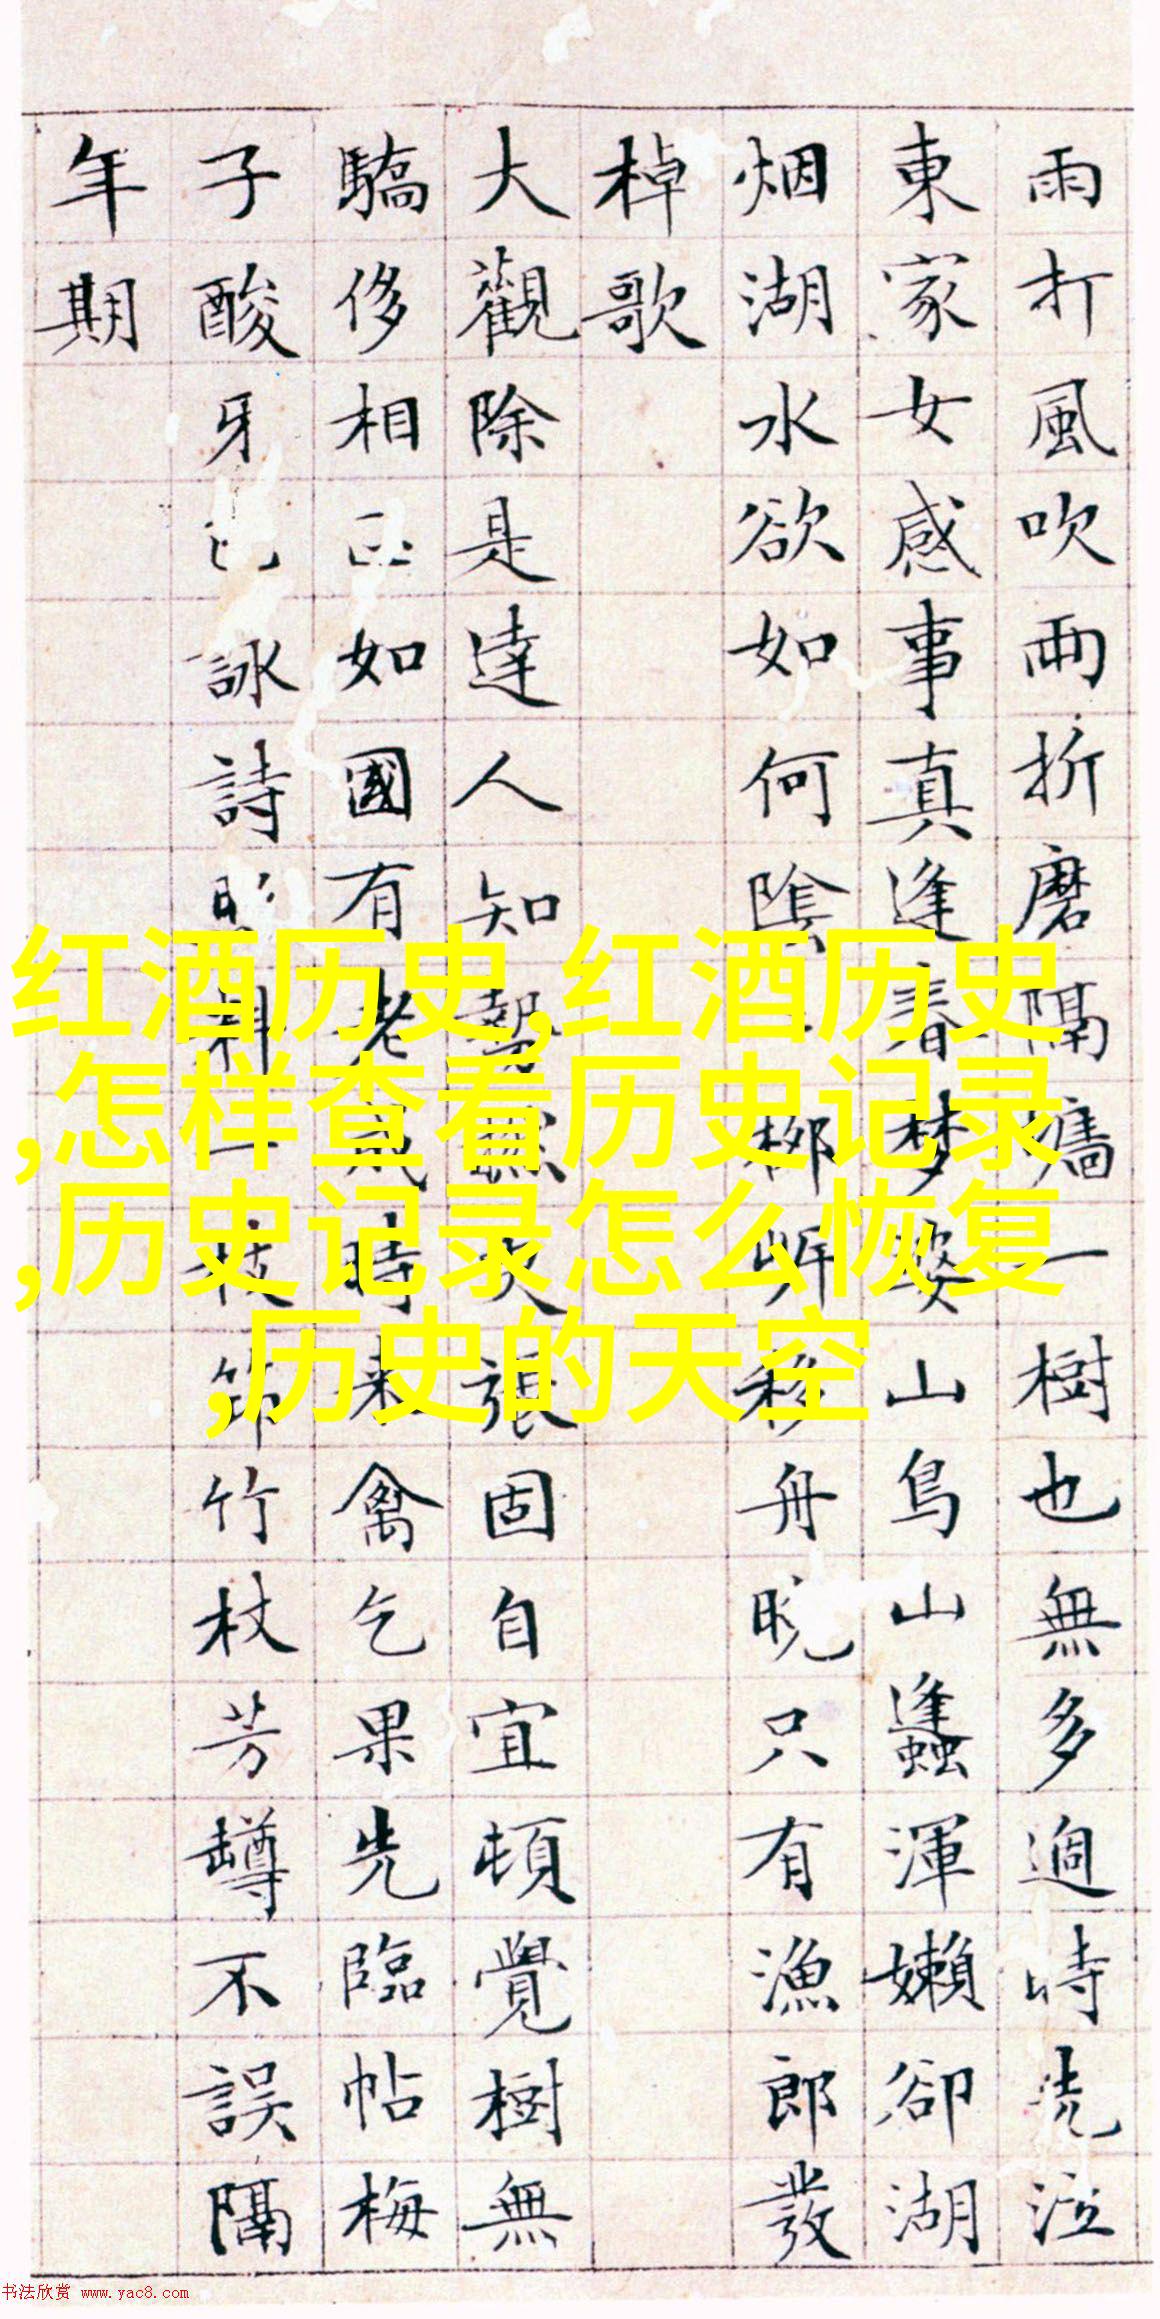 雨打風吹雨折磨隔牆一樹也無多過時洗泣
東家女感事真逢春夢婆山鳥山蠭渾嬾卻湖
烟湖水欲如何陰柳岍移舟晚只有漁郎發
棹歌
大觀除是達人知勢焰火張固自宜頓覺樹無
驕侈相如國有老成時来禽乞果先臨帖梅
子酸牙詠詩斜一枝筇竹杖芳罇不誤隔
年期
红酒历史,红酒历史
,怎样查看历史记录
,历史记录怎么恢复
,历史的天空
书法欣赏 www.yac8.com